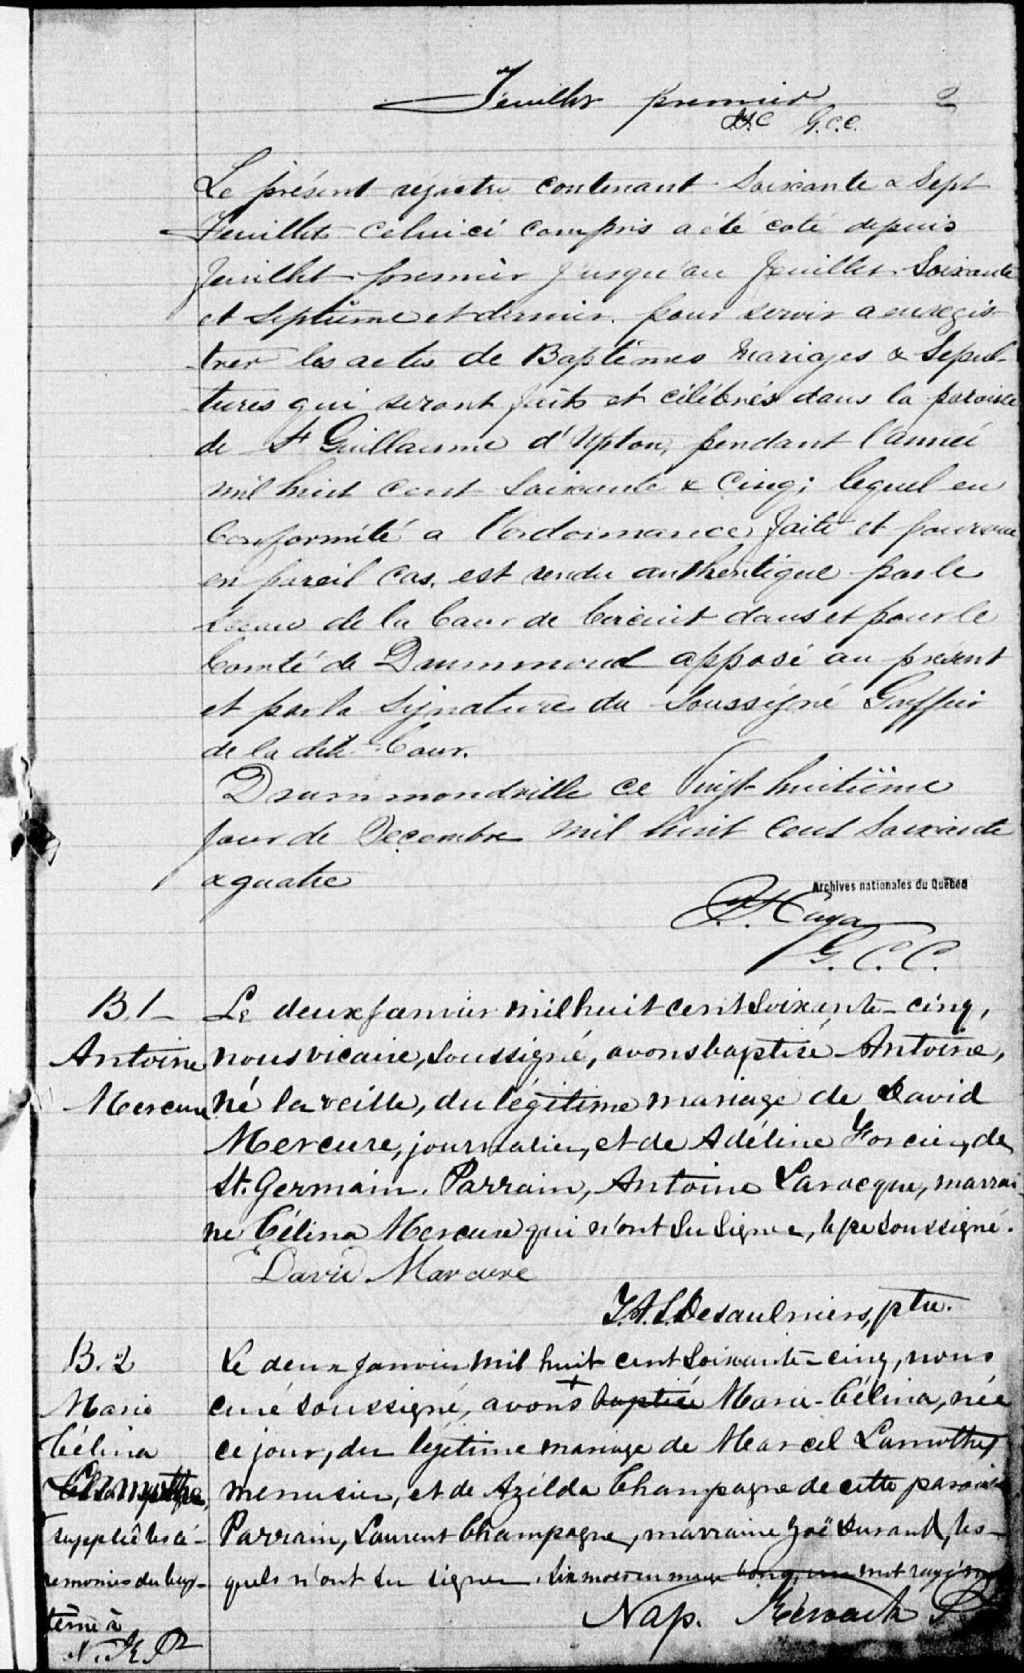 Feuillet premier 2
G.C.C.
Le présent régistre contenant Soixante & Sept
Feuillets celui ci compris a été coté depuis
feuillet premier jusqu'au feuillet Soixante
et Septième et dernier pour servir a enregis
trer les actes de Baptêmes Mariages & Sepul-
tures qui seront faits et célébrés dans la paroisse
de St Guillaume d'Upton, pendant l'année
mil huit cent Soixante & Cinq; lequel en
Conformité a l'ordonnance faite et pourvue
en pareil cas, est rendu authentique par le
Sceau de la Cour de Circuit dans et pour le
Comté de Drummond apposé au présent
et par la Signature du Soussigné Greffier
de la dite Cour.
Drummondville ce Vingt huitième
jour de Decembre mil huit cent Soixante
& quatre
Archives nationales du Québec
G.C.C.
B 1 Le deux Janvier mil huit cent soixante-cinq,
Antoine nous vicaire, soussigné, avons baptisé Antoine,
Mercure né la veille, du légitime mariage de David
Mercure, journalier, et de Adéline Forcier, de
St. Germain. Parrain, Antoine Larocque, marrai-
ne Célina Mercure qui n'ont su signer, le père soussigné.
David Marcure
Desaulniers, ptre.
B. 2 Le deux Janvier mil huit cent soixante-cinq, nous
Marie curé soussigné, avons + baptisé Marie-Célina, née
Célina ce jour, du légitime mariage de Marcel Lamothe,
menuisier, et de Azilda Champagne de cette paroisse
suppléé les cé- Parrain, Laurent Champagne, marraine Zoë Durand, les-
remonies du bap- quels n'ont su signer. mot rayé
tême à Nap.
N. K. P